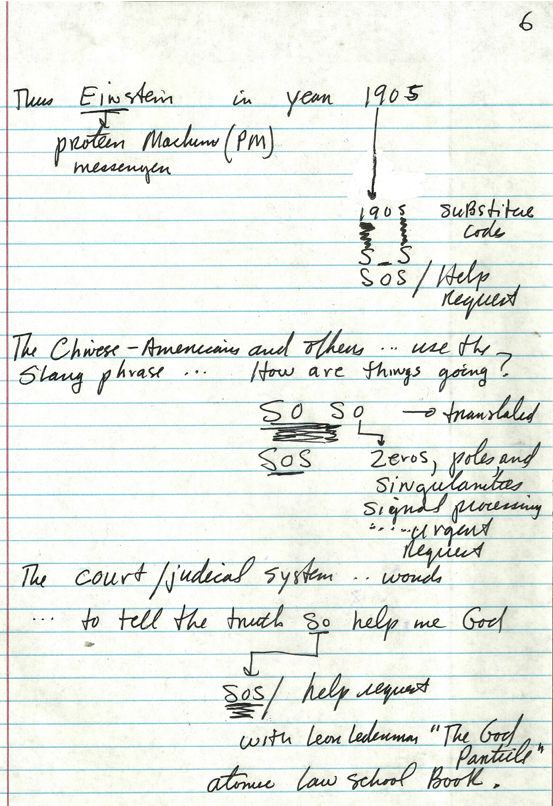 6
Thus Einstein in year 1905
protein Machine (PM)
messenger
1905 substitute
code
S _ S
SOS / Help
request
The Chinese-Americans and others ... use the
Slang phrase ... How are things going?
SO SO → translated
SOS Zeros, poles, and
singularities
signal processing
..... urgent
request
The court/judical system .. words
... to tell the truth So help me God
SOS / help request
with Leon Lederman "The God
Particle"
atomic law school Book.